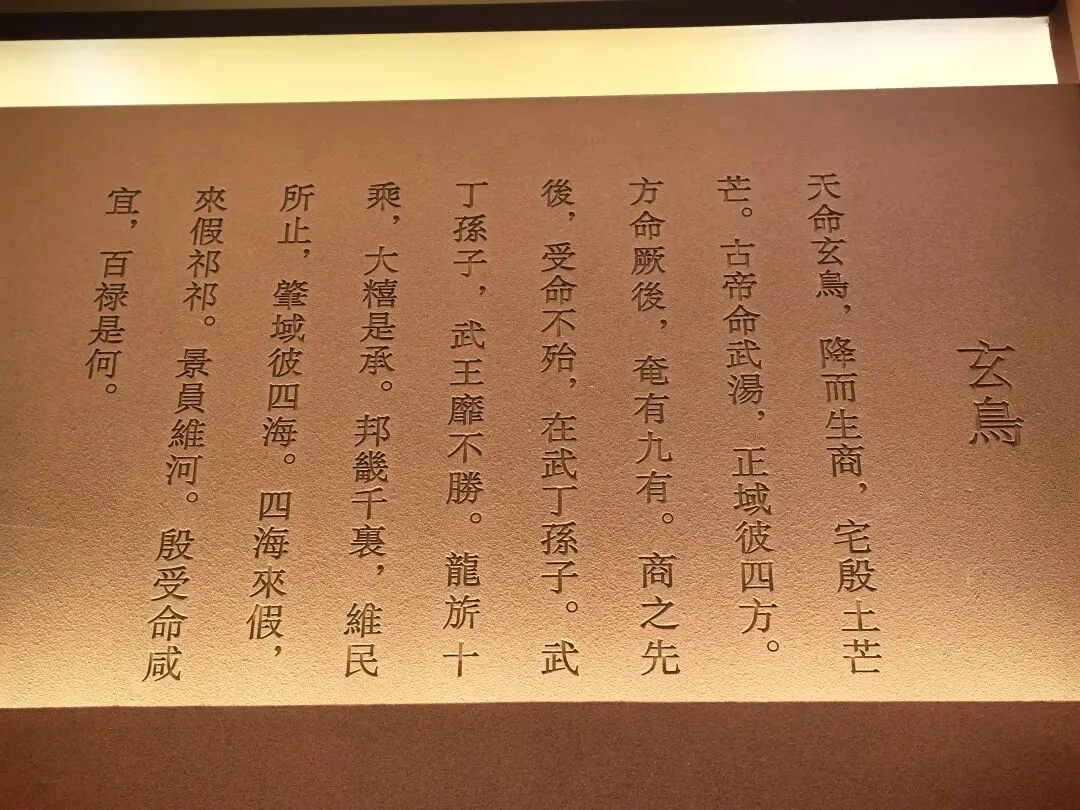 玄鳥
天命玄鳥，降而生商，宅殷土芒
芒。古帝命武湯，正域彼四方。
方命厥後，奄有九有。商之先
後，受命不殆，在武丁孫子。武
丁孫子，武王靡不勝。龍旂十
乘，大糦是承。邦畿千裏，維民
所止，肇域彼四海。四海來假，
來假祁祁。景員維河。殷受命咸
宜，百禄是何。